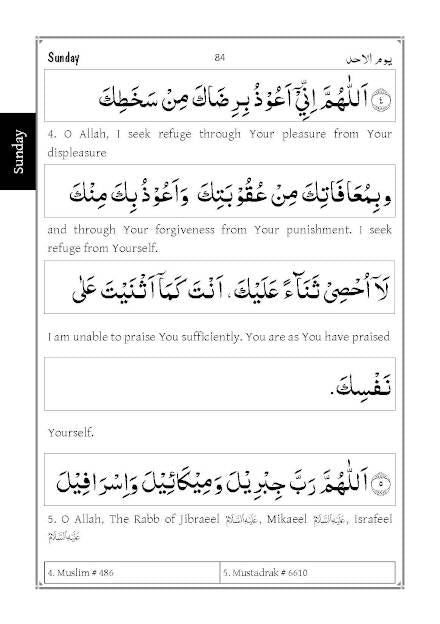 Sunday
84
يوم الاحد
Sunday
٤ اَللّٰهُمَّ اِنِّيْٓ اَعُوْذُ بِرِضَاكَ مِنْ سَخَطِكَ
4. O Allah, I seek refuge through Your pleasure from Your
displeasure
وبِمُعَافَاتِكَ مِنْ عُقُوْبَتِكَ وَاَعُوْذُ بِكَ مِنْكَ
and through Your forgiveness from Your punishment. I seek
refuge from Yourself.
لَآ اُحْصِيْ ثَنَآءً عَلَيْكَ، اَنْتَ كَمَآ اَثْنَيْتَ عَلٰى
I am unable to praise You sufficiently. You are as You have praised
نَفْسِكَ.
Yourself.
٥ اَللّٰهُمَّ رَبَّ جِبْرِيْلَ وَمِيْكَائِيْلَ وَاِسْرَافِيْلَ
5. O Allah, The Rabb of Jibraeel عَلَيْهِ السَّلَامُ, Mikaeel عَلَيْهِ السَّلَامُ, Israfeel
عَلَيْهِ السَّلَامُ
4. Muslim # 486
5. Mustadrak # 6610